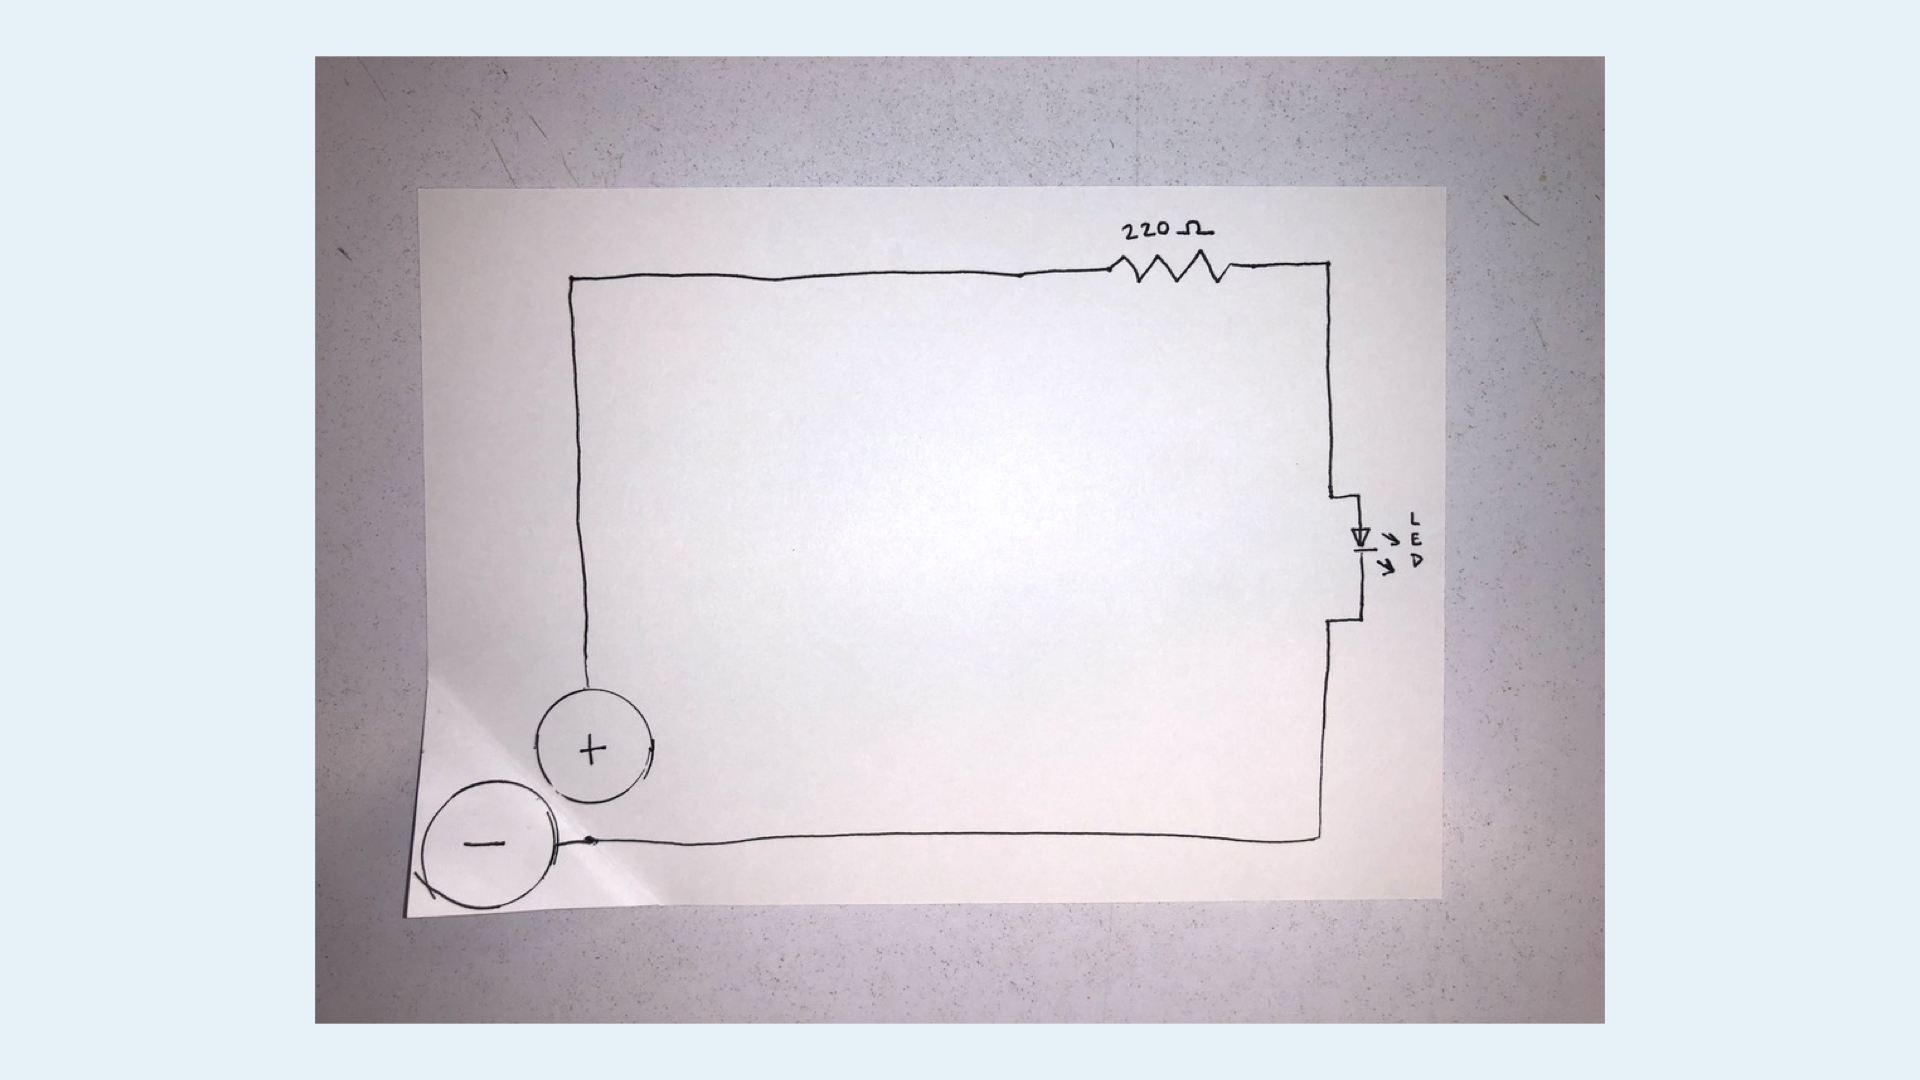 220 Ω
L
E
D
+
−